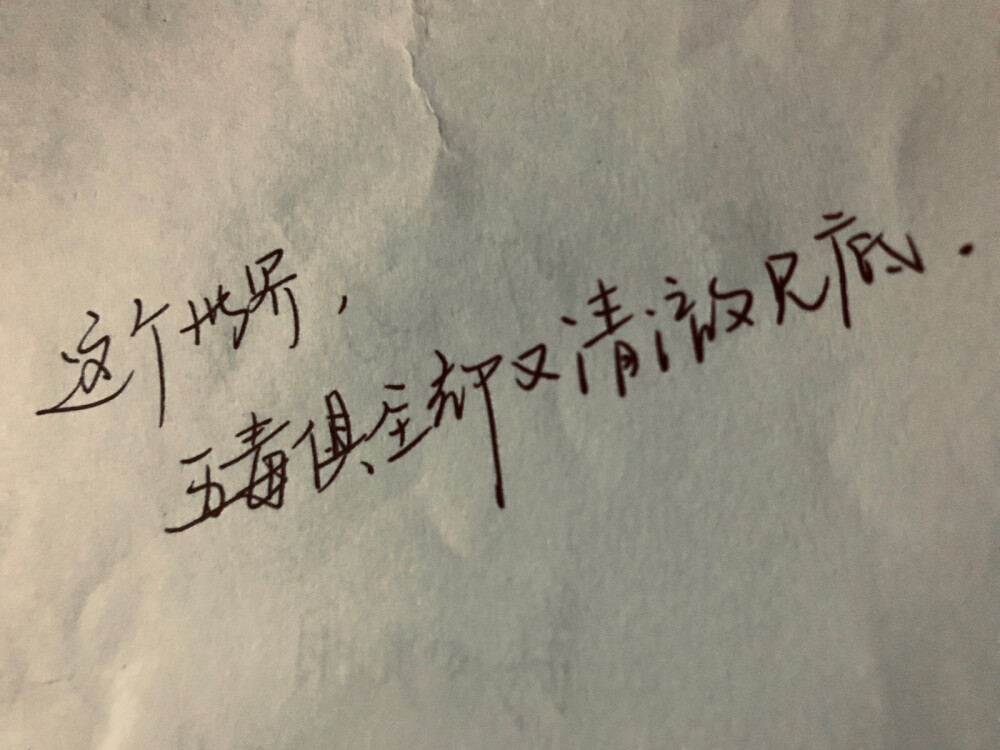 这个世界，
五毒俱全却又清澈见底.